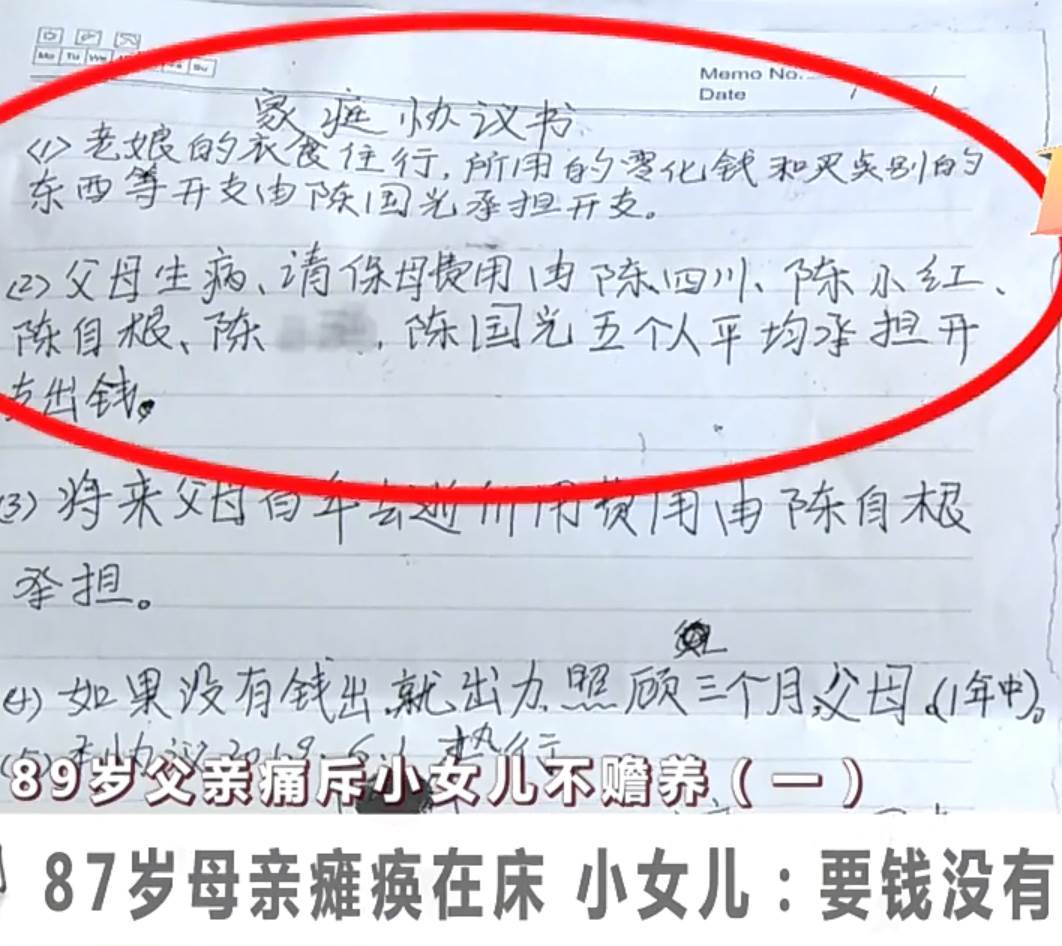 Mo Tu We Su
Memo No.
Date / /
家庭协议书
(1)老娘的衣食住行,所用的零化钱和买卖别的
东西等开支由陈国光承担开支。
(2)父母生病、请保母费用由陈四川、陈小红、
陈自根、陈 ,陈国光五个人平均承担开
支出钱。
(3)将来父母百年去逝所用费用由陈自根
承担。
(4)如果没有钱出,就出力照顾三个月父母(1年中)。
(5)本协议2019.6.1执行
89岁父亲痛斥小女儿不赡养(一)
87岁母亲瘫痪在床 小女儿:要钱没有